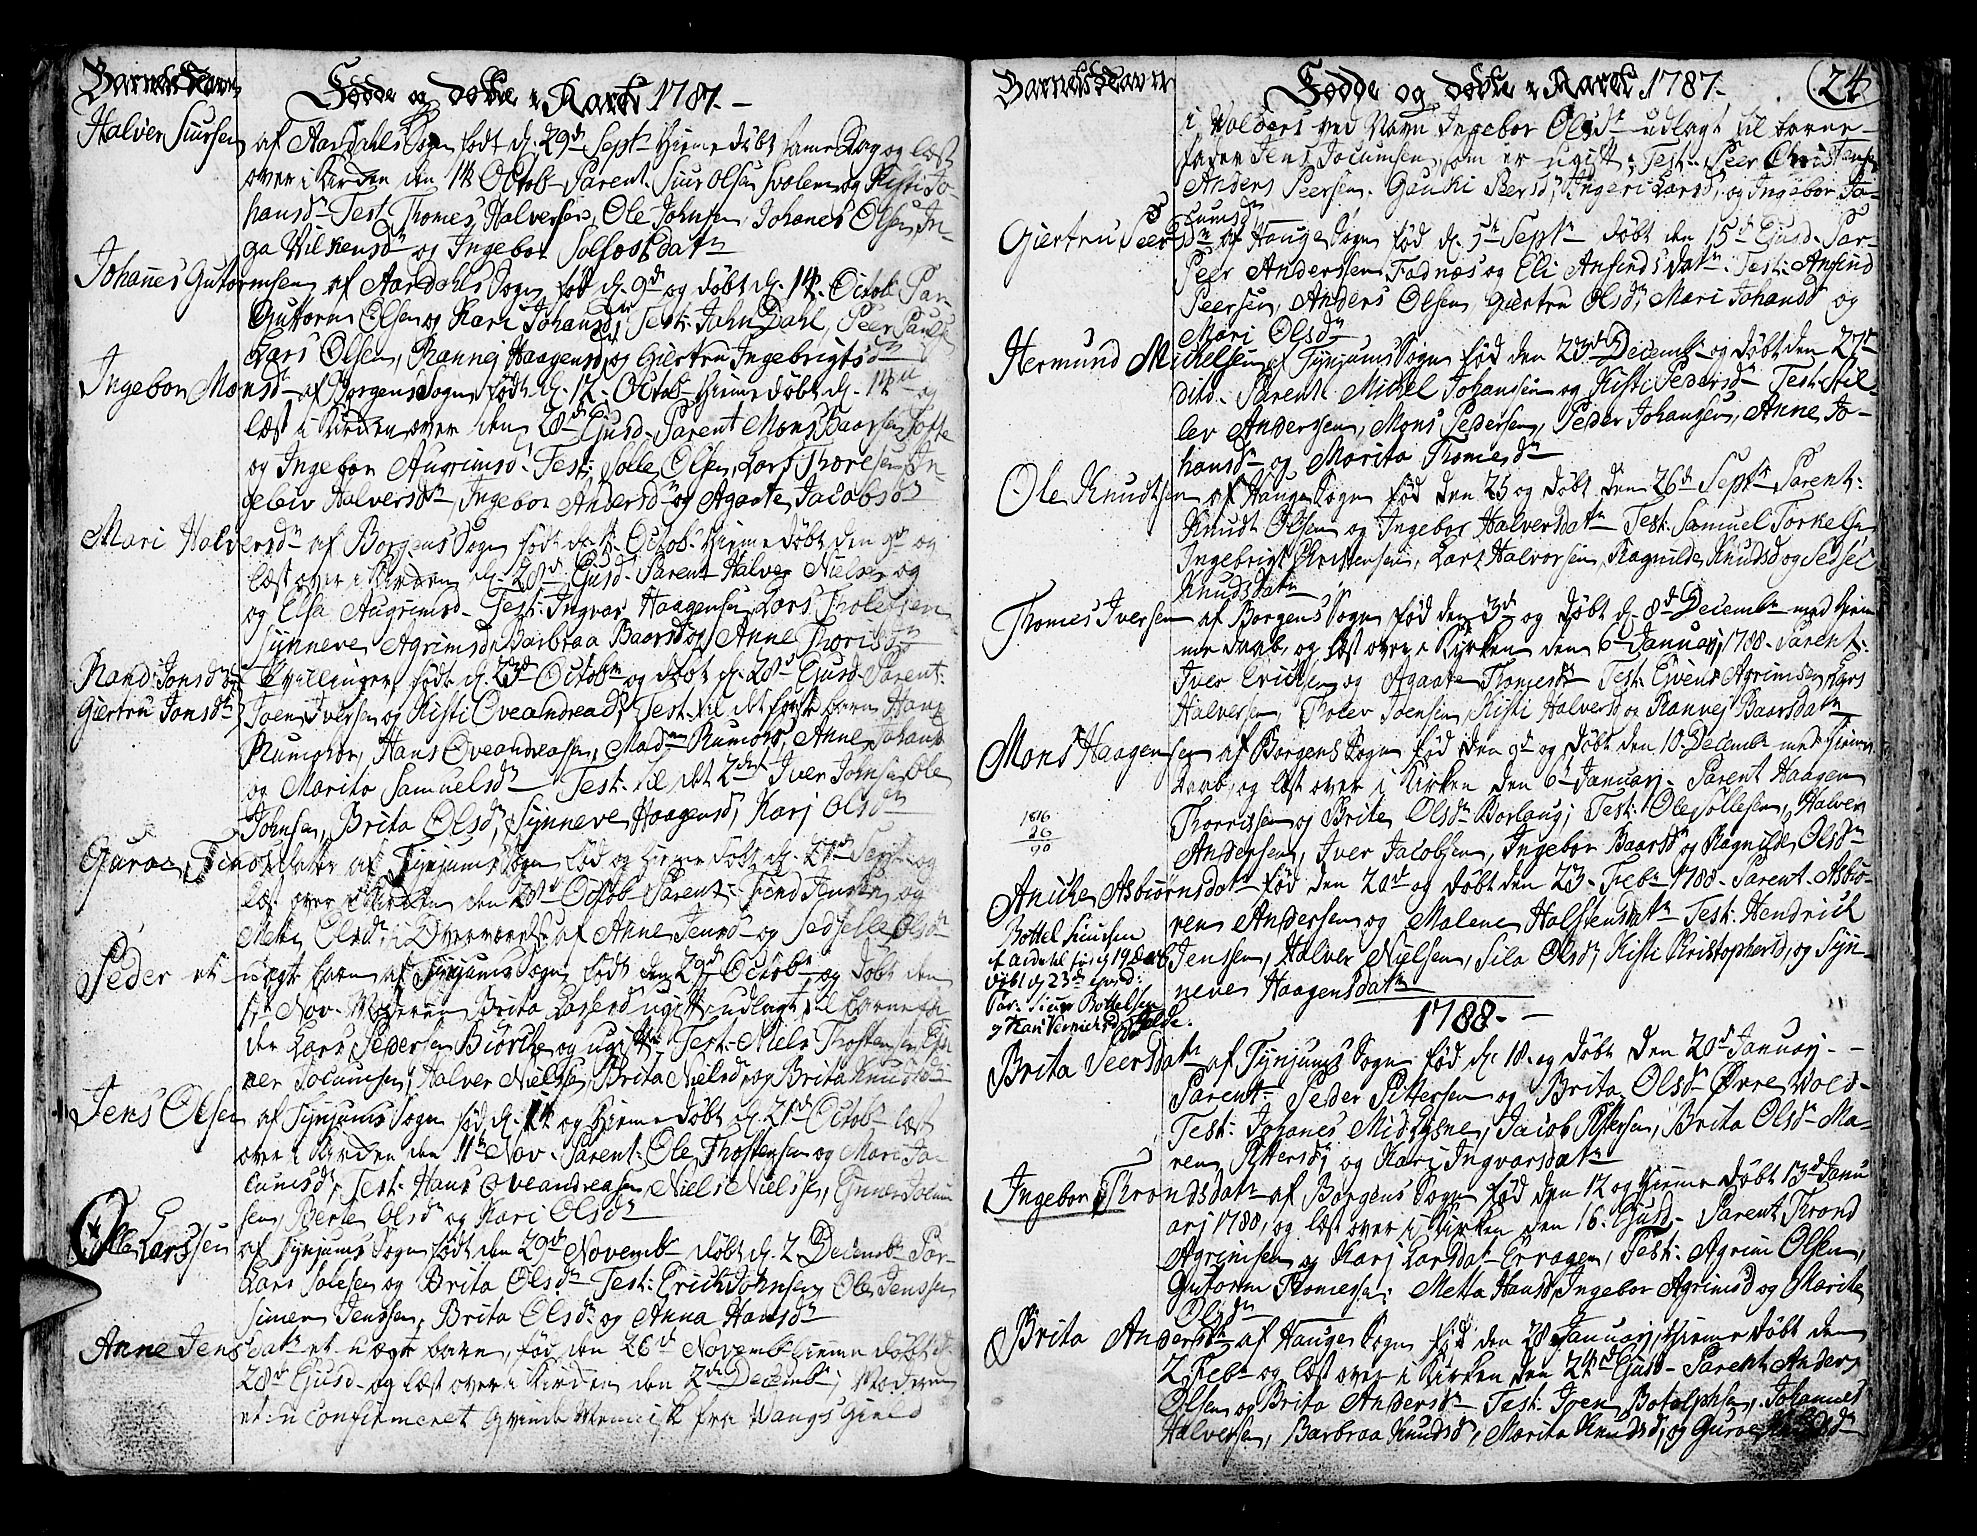 Barnets Navn
Fødde og døbte i Aaret 1787.
Halver Siursen af Aardahls Sogn født d. 29de Septr hiemedøbt samme Dag og læst
over i Kirken den 14 Octob. Parent. Siur Olsen Svalem og Kisti Jo-
hansdr Test. Thomes Halversen, Ole Johnsen, Johanes Olsen, In-
ga Vilkensdr og Ingebor Solfostdatr
Johanes Gutormsen af Aardahls Sogn fød d. 9de og døbt d. 14. Octob. Par-
Guttorm Olsen og Kari Johansdr, Test: John Dahl, Peer Pauls
Lars Olsen, Rannej Haagensd. og Giertru Ingebrigtsdr
Ingebor Monsdr af Borgens Sogn født d. 12. Octob. hiemedøbt d. 14 og
læst i Kirken over den 28de Ejusd. Parent Mons Baarsen Tofte
og Ingebor Augrimsd. Test: Solle Olsen, Lars Thoresen, In-
gelev Halversdr, Ingebor Andersdr og Agaate Jacobsdr
Mari Halversdr af Borgens Sogn født d. Octob. hiemedøbt den 9de og
læst over i Kirken d. 28de Ejusd. Parent Halver Nielsen og
og Elsa Augrimsd. Test: Ingvar Haagensen, Lars Tholefsen
Synneve Agrimsdr Barbraa Baarsd og Anne Thorisdr
Rand. Jonsdr Tvillinger født d. 23de Octobr og døbt d. 28de Ejusd. Parent:
Giertru Jonsdr Joen Iversen og Kisti Oveandread, Test. til det første barn Hans
Rumohr, Hans Oveandreasen, Madm Rumors, Anne Johans
og Marita Samuelsdr Test: til det 2det Iver Johnsen Ole
Johnsen, Brita Olsdr, Synneve Haagensd, Karj Olsdr
Guroe Findsdatter af Tynjums Sogn fød og hiemedøbt d. 27de Septr og
læst over i Kirken den 28de Octob. Parent: Find Jensen og
Mette Olsdr, i Overværelse af Anne Jensd. og Sedselle Olsdr
Peder et uægte barn af Tynjums Sogn født den 29de Octobr og døbt den
Nov. Moderen Brita Larsd ugift, udlagt til barnefa-
der Lars Pedersen Biørche og ugift Test. Niels Thostensen Ej-
ner Jocumsen, Halver Nielsen, Brita Nielsdr, og Brita Knudsdr
Jens Olsen af Tynjums Sogn fød d. 14 og hiemedøbt d. 21de Octobr læst
over i Kirken den 11te Nov. Parent: Ole Thostensen og Mari Jo-
cumsdr, Test: Hans Oveandreasen, Niels Nielsen, Ejnner Jocum
sen, Berte Olsdr og Kari Olsdr
Olle Larssen af Tynjums Sogn født den 29de Novembr døbt d. 2 Decembr Par-
Lars Solesen og Brita Olsdr Test: Erich Johnsen, Ole Jenssen
Simen Jenssen, Brita Olsdr og Anna Hansdr
Anne Jensdatr et uægte barn, fød den 26de Novemb hieme døbt d.
28de Ejusd. og læst over i Kirken den 2den Decembr, Moderen
et u confirmeret Qvinde Menniske fra Vangs Gield
Barnets Navn
Fødde og døbte i Aaret 1787.
24
i Valders ved Navn Ingebor Olsdr udlagt til barne-
fader Jens Jocumsen, som er ugift, Test. Peer Christans
Anders Peersen, Gauki Persd, Ingeri Larsd, og Ingebor Jo-
cumsdr
Giertru Peersdr af Hauge Sogn fød d. 5te Septr døbt den 15de Ejusd. Par-
Peer Anderssen Fadnæs og Eli Anfindsdatr. Test: Anfind
Peersen, Anders Olsen, Giertru Olsdr, Mari Johansd og
Mari Olsdr
Hermund Mickelsen af Tynjums Sogn fød den 23de Decembr og døbt den 27de
dito. Parent Mickel Johansen og Kisti Pedersdr Test: Stil-
lev Anderssen, Mons Pedersen, Peder Johansen, Anne Jo-
hansdr og Marita Thomesdr
Ole Knudtsen af Hauge Sogn fød den 25 og døbt den 26de Septr Parent:
Knudt Olsen og Ingebor Halversdatr Test: Samuel Torkelse
Ingebrigt Christensen, Lars Halvorsen, Ragnilde Knudsd og Sedsel
Knudsdatr
Thomes Iversen af Borgens Sogn fød den 3de og døbt d. 8de Decembr med hiem
me daab, og læst over i Kirken den 6te Januarj 1788. Parent:
Iver Erichsen og Agaate Thomesdr Test: Ejvend Agrimsen, Lars
Halversen, Tholev Joensen, Kisti Halversd og Ranvej Baarsdatr
Mons Haagensen af Borgens Sogn fød den 9de og døbt den 10. Decembr med hiem
daab, og læst over i Kirken den 6te Januarj. Parent Haagen
Thorrissen og Brite Olsdr Borlaug; Test: Ole Tollesen, Halver
Andersen, Iver Jacobsen, Ingebor Baarsdr og Ragnilde Olsdr
1816
26
90
Aniche Asbiørnsdatr fød den 20de og døbt den 23. Febr 1788. Parent. Asbiø-
ren Andersen og Malene Halstensdatr Test: Hendrick
Jenssen, Halver Nielsen, Sila Olsdr, Kisti Kristophersd, og Syn-
neve Haagensdatr
Bottel Siursen
af Aardal føt d 19 Decb
døbt d 23de ejusd:
Par: Siur Bottelsen
og Kari Vernichsd Holde.
1788.
Brita Peersdatr af Tynjums Sogn fød d. 18. og døbt den 20de Januarj.
Parent: Peder Pettersen og Brita Olsdr Øvre Vold.
Test: Johanes Midlysne, Jacob Pettersen, Brita Olsdr Ma-
ren Pittersdr, og Kari Ingvarsdatr
Ingebor Throndsdatr af Borgens Sogn fød den 12 og hieme døbt 13de Janu
arj 1788, og læst over i Kirken den 16. Ejusd. Parent Trond
Agrimsen og Karj Larsdatr Erragen, Test: Agrim Olsen,
Gutorm Thomessen, Metta Hansd, Ingebor Agrimsd og Marite
Olsdr
Brita Andersdr af Hauge Sogn fød den 28. Januarj, hieme døbt den
2 Febr og læst over i Kirken den 24de Ejusd. Parent Anders
Olsen og Brita Andersdr Test: Joen Botolphsen, Johannes
Halversen, Barbraa Knudsd, Marita Knudsd, og Guroe Knudsdr